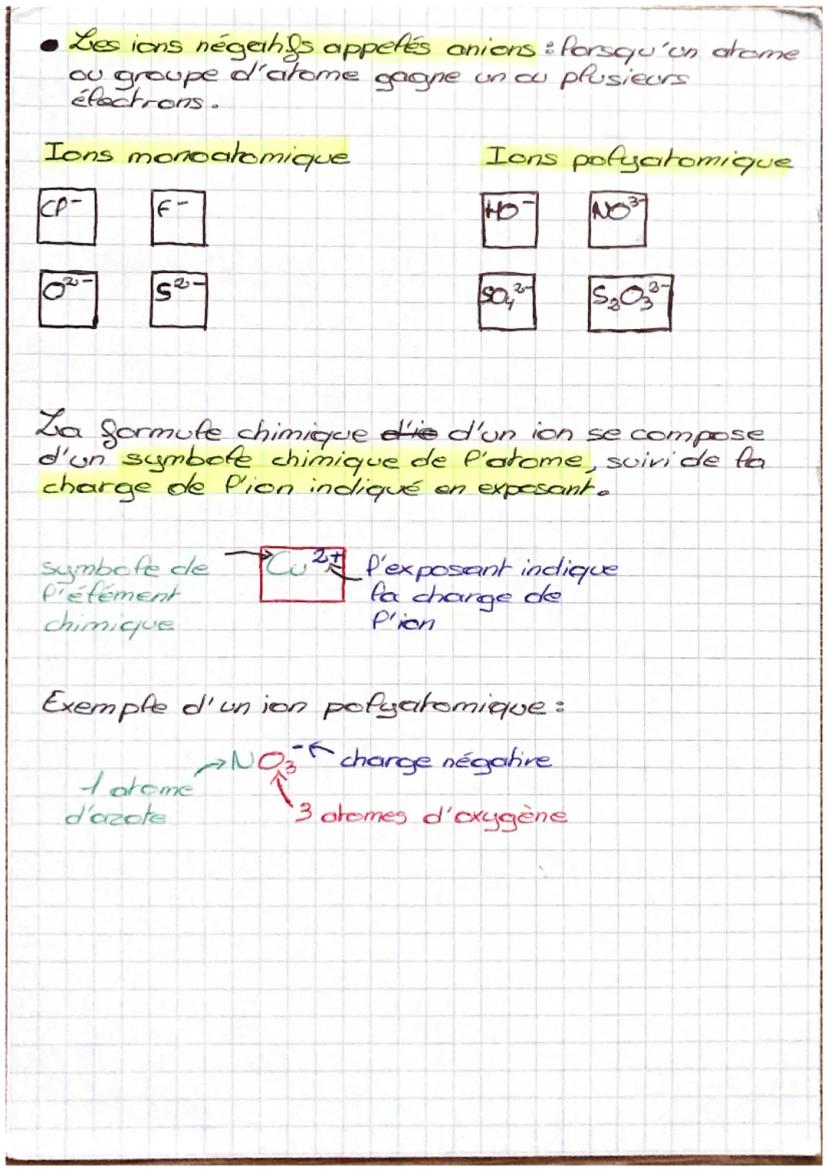 • Les ions négatifs appelés anions : lorsqu'un atome
ou groupe d'atome gagne un ou plusieurs
électrons.
Ions monoatomique
Ions polyatomique
Cl⁻ F⁻
HO⁻ NO³⁻
O²⁻ S²⁻
SO₄²⁻ S₂O₃²⁻
La formule chimique ~~d'io~~ d'un ion se compose
d'un symbole chimique de l'atome, suivi de la
charge de l'ion indiqué en exposant.
symbole de
l'élément
chimique
Cu²⁺
l'exposant indique
la charge de
l'ion
Exemple d'un ion polyatomique :
1 atome
d'azote
NO₃⁻
charge négative
3 atomes d'oxygène